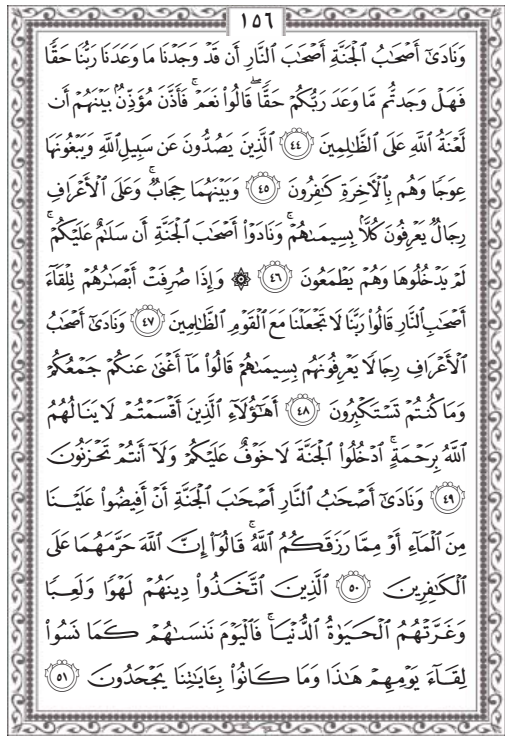 ١٥٦
وَنَادَىٰٓ أَصْحَٰبُ ٱلْجَنَّةِ أَصْحَٰبَ ٱلنَّارِ أَن قَدْ وَجَدْنَا مَا وَعَدَنَا رَبُّنَا حَقًّا
فَهَلْ وَجَدتُّم مَّا وَعَدَ رَبُّكُمْ حَقًّا ۖ قَالُوا۟ نَعَمْ ۚ فَأَذَّنَ مُؤَذِّنٌۢ بَيْنَهُمْ أَن
لَّعْنَةُ ٱللَّهِ عَلَى ٱلظَّٰلِمِينَ ٤٤ ٱلَّذِينَ يَصُدُّونَ عَن سَبِيلِ ٱللَّهِ وَيَبْغُونَهَا
عِوَجًا وَهُم بِٱلْءَاخِرَةِ كَٰفِرُونَ ٤٥ وَبَيْنَهُمَا حِجَابٌ ۚ وَعَلَى ٱلْأَعْرَافِ
رِجَالٌ يَعْرِفُونَ كُلًّۢا بِسِيمَىٰهُمْ ۚ وَنَادَوْا۟ أَصْحَٰبَ ٱلْجَنَّةِ أَن سَلَٰمٌ عَلَيْكُمْ ۚ
لَمْ يَدْخُلُوهَا وَهُمْ يَطْمَعُونَ ٤٦ ۞ وَإِذَا صُرِفَتْ أَبْصَٰرُهُمْ تِلْقَآءَ
أَصْحَٰبِ ٱلنَّارِ قَالُوا۟ رَبَّنَا لَا تَجْعَلْنَا مَعَ ٱلْقَوْمِ ٱلظَّٰلِمِينَ ٤٧ وَنَادَىٰٓ أَصْحَٰبُ
ٱلْأَعْرَافِ رِجَالًا يَعْرِفُونَهُم بِسِيمَىٰهُمْ قَالُوا۟ مَآ أَغْنَىٰ عَنكُمْ جَمْعُكُمْ
وَمَا كُنتُمْ تَسْتَكْبِرُونَ ٤٨ أَهَٰٓؤُلَآءِ ٱلَّذِينَ أَقْسَمْتُمْ لَا يَنَالُهُمُ
ٱللَّهُ بِرَحْمَةٍ ۚ ٱدْخُلُوا۟ ٱلْجَنَّةَ لَا خَوْفٌ عَلَيْكُمْ وَلَآ أَنتُمْ تَحْزَنُونَ
٤٩ وَنَادَىٰٓ أَصْحَٰبُ ٱلنَّارِ أَصْحَٰبَ ٱلْجَنَّةِ أَنْ أَفِيضُوا۟ عَلَيْنَا
مِنَ ٱلْمَآءِ أَوْ مِمَّا رَزَقَكُمُ ٱللَّهُ ۚ قَالُوٓا۟ إِنَّ ٱللَّهَ حَرَّمَهُمَا عَلَى
ٱلْكَٰفِرِينَ ٥٠ ٱلَّذِينَ ٱتَّخَذُوا۟ دِينَهُمْ لَهْوًا وَلَعِبًا
وَغَرَّتْهُمُ ٱلْحَيَوٰةُ ٱلدُّنْيَا ۚ فَٱلْيَوْمَ نَنسَىٰهُمْ كَمَا نَسُوا۟
لِقَآءَ يَوْمِهِمْ هَٰذَا وَمَا كَانُوا۟ بِـَٔايَٰتِنَا يَجْحَدُونَ ٥١